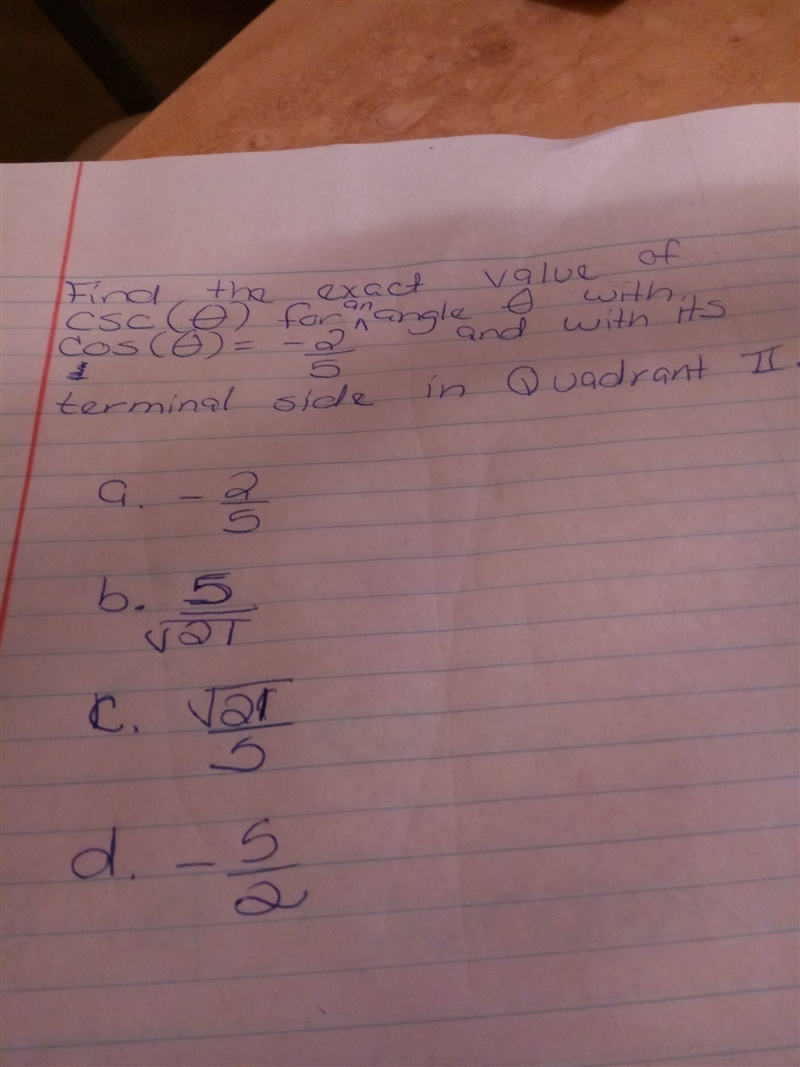 Find the exact value of
csc(θ) for an angle θ with
cos(θ) = -2/5 and with its
terminal side in Quadrant II.
a. -2/5
b. 5/√21
c. √21/5
d. -5/2